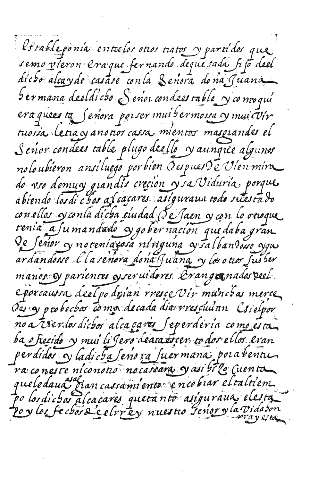 estable ponia entre los otros tratos y partidos que
se movieron Era que fernando de quesada fijo del
dicho alcayde casase con la Señora doña Juana
hermana del dicho Señor condestable y como qui
era que esta Señora por ser mui hermosa y mui Vir
tuosa le traya en otros casamientos mas grandes el
Señor condestable plugo dello y aunque algunos
no lo ubieron ansi luego por bien Despues De Vien mira
do uso de mui grandis crecion y saViduria porque
abiendo los dichos alcaçares asigurava todo su estado
con ellos y con la dicha ciudad De Jaen y con lo otro que
tenia a su mandado y gobernacion quedaba gran
De Señor y no temia cosa ninguna y salbandose y gu
ardandose el la señora doña Juana y los otros sus her
manos y parientes y servidores Eran ganados del
e por causa del podrian rrescevir munchas merce
des y probechos como de cada dia rrescluian E si el por
no aVer los dichos alcaçares se perderia como esta
ba ofrecido y mui ligero de acaescer todos ellos eran
perdidos y la dicha Señora su ermana por abentu
ra con este ni con otro no casara y asi hizo cuenta
que le dava gran casamiento en cobrar el tal tiem
po los dichos alcaçares que tanto asigurava el esta
do y los fechos de el rrey nuestro Señor y la Vida